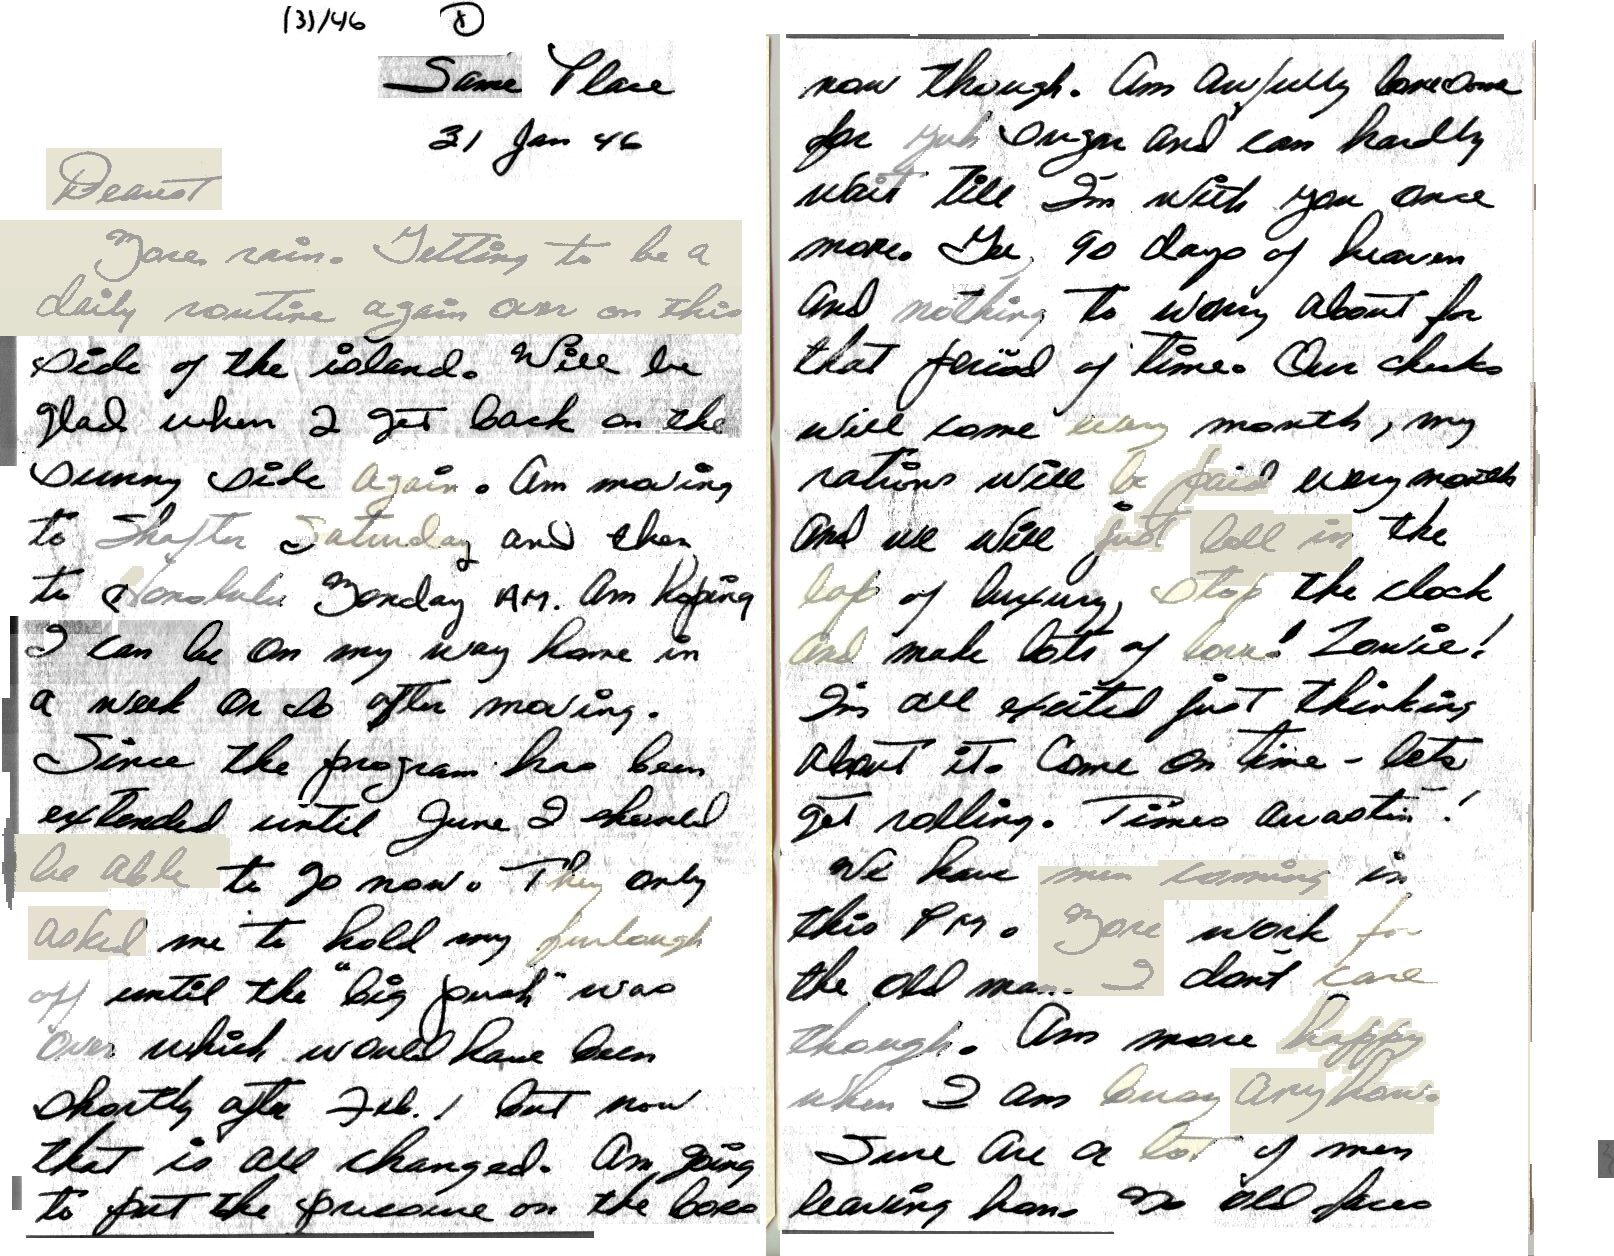 (3)/46 ①
Same Place
31 Jan 46
Dearest
More rain. Getting to be a
daily routine again over on this
side of the island. Will be
glad when I get back on the
sunny side again. Am moving
to Shafter Saturday and then
to Honolulu Monday AM. Am hoping
I can be on my way home in
a week or so after moving.
Since the program has been
extended until June I should
be able to go now. They only
asked me to hold my furlough
off until the "big push" was
over which would have been
shortly after Feb. 1 but now
that is all changed. Am going
to put the pressure on the boss
now though. Am awfully lonesome
for yuh sugar and can hardly
wait till I'm with you once
more. Gee, 90 days of heaven
and nothing to worry about for
that period of time. Our checks
will come every month, my
rations will be paid every month
and we will just loll in the
lap of luxury, stop the clock
and make lots of love! Zowie!
I'm all excited just thinking
about it. Come on time - lets
get rolling. Times awastin'!
We have men coming in
this PM. More work for
the old man. I don't care
though. Am more happy
when I am busy anyhow.
Sure are a lot of men
leaving here. No old faces